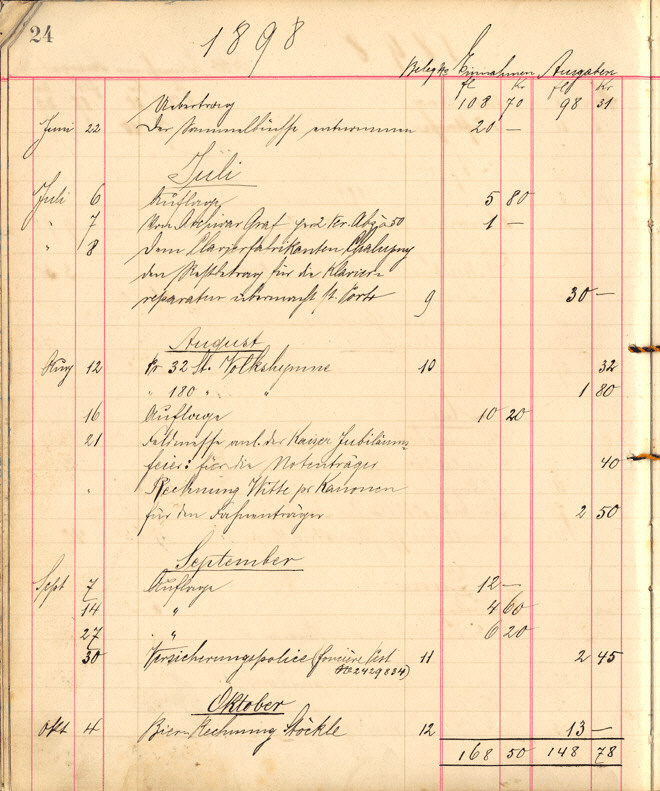 24
1898
Beleg No Einnahmen Ausgaben
fl Kr fl Kr
Uebertrag 108 70 98 31
Juni 22 Der Sammelbüchse entnommen 20 —
Juli
Juli 6 Auflage 5 80
" 7 Von Archivar Graf pr 2 Kr. Abz. à 50 1 —
" 8 Dem Clavierfabrikanten
den Restbetrag für die Klavier=
reparatur übermacht st. Porto 9 30 —
August
Aug 12 für 32 St. Volkshymne 10 32
" 180 " " 1 80
16 Auflage 10 20
21 Feldmesse anl. der Kaiser Jubiläums
feier: für die Notenträger 40
" Rechnung Witte pr Kanonen
für den Fahnenträger 2 50
September
Sept 7 Auflage 12 —
14 " 4 60
27 " 6 20
30 Versicherungspolice (foncière Pest 11 2 45
No 2429834)
Oktober
Okt 4 Bier=Rechnung Stöckle 12 13 —
168 50 148 78